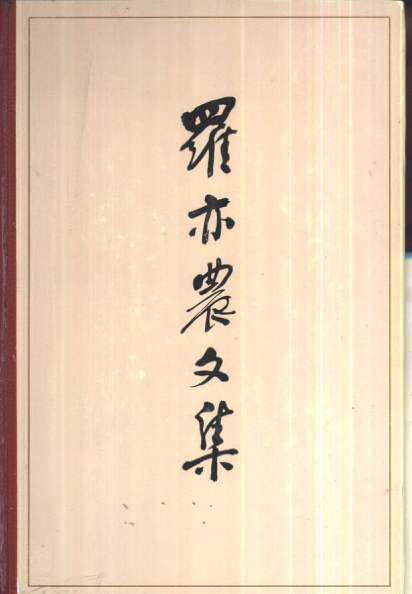 羅亦農文集